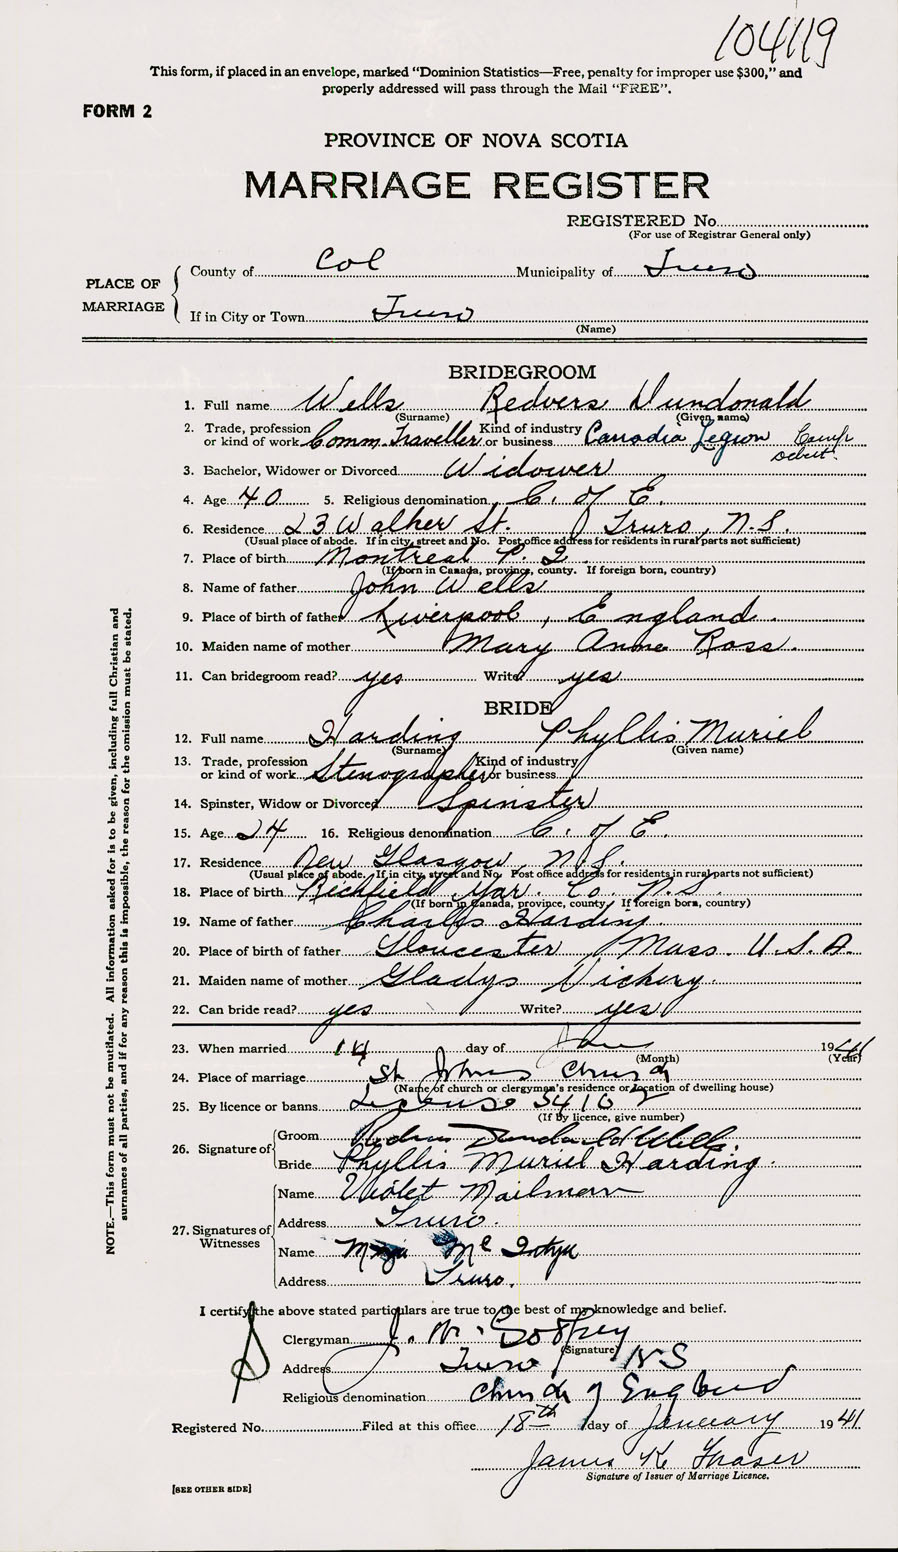 104119
This form, if placed in an envelope, marked "Dominion Statistics—Free, penalty for improper use $300," and
properly addressed will pass through the Mail "FREE".
FORM 2
PROVINCE OF NOVA SCOTIA
MARRIAGE REGISTER
REGISTERED No.
(For use of Registrar General only)
PLACE OF MARRIAGE
County of Col Municipality of Truro
If in City or Town Truro
(Name)
BRIDEGROOM
1. Full name Wells Redvers Dundonald
(Surname) (Given name)
2. Trade, profession or kind of work Comm. Traveller Kind of industry or business Canadia Legion Camp Debert
3. Bachelor, Widower or Divorced Widower
4. Age 40 5. Religious denomination C. of E.
6. Residence 23 Walker St. Truro, N.S.
(Usual place of abode. If in city, street and No. Post office address for residents in rural parts not sufficient)
7. Place of birth Montreal P. Q.
(If born in Canada, province, county. If foreign born, country)
8. Name of father John Wells
9. Place of birth of father Liverpool, England.
10. Maiden name of mother Mary Anne Ross.
11. Can bridegroom read? yes Write? yes
BRIDE
12. Full name Harding Phyllis Muriel
(Surname) (Given name)
13. Trade, profession or kind of work Stenographer Kind of industry or business
14. Spinster, Widow or Divorced Spinster
15. Age 24 16. Religious denomination C. of E.
17. Residence New Glasgow, N.S.
(Usual place of abode. If in city, street and No. Post office address for residents in rural parts not sufficient)
18. Place of birth Richfield Yar. Co. N.S.
(If born in Canada, province, county. If foreign born, country)
19. Name of father Charles Harding.
20. Place of birth of father Gloucester, Mass. U.S.A.
21. Maiden name of mother Gladys Vickery.
22. Can bride read? yes Write? yes
23. When married 14 day of Jan 1941
(Month) (Year)
24. Place of marriage St Johns Church
(Name of church or clergyman's residence or location of dwelling house)
25. By licence or banns License 5410
(If by licence, give number)
26. Signature of
Groom Redvers Dundonald Wells.
Bride Phyllis Muriel Harding.
27. Signatures of Witnesses
Name Violet Mailman
Address Truro.
Name Mc
Address Truro.
I certify the above stated particulars are true to the best of my knowledge and belief.
Clergyman J. M. Godfrey
(Signature)
Address Truro NS
Religious denomination Church of England
Registered No. Filed at this office 18th day of January 1941
James K Fraser
Signature of Issuer of Marriage Licence.
[SEE OTHER SIDE]
NOTE.—This form must not be mutilated. All information asked for is to be given, including full Christian and
surnames of all parties, and if for any reason this is impossible, the reason for the omission must be stated.